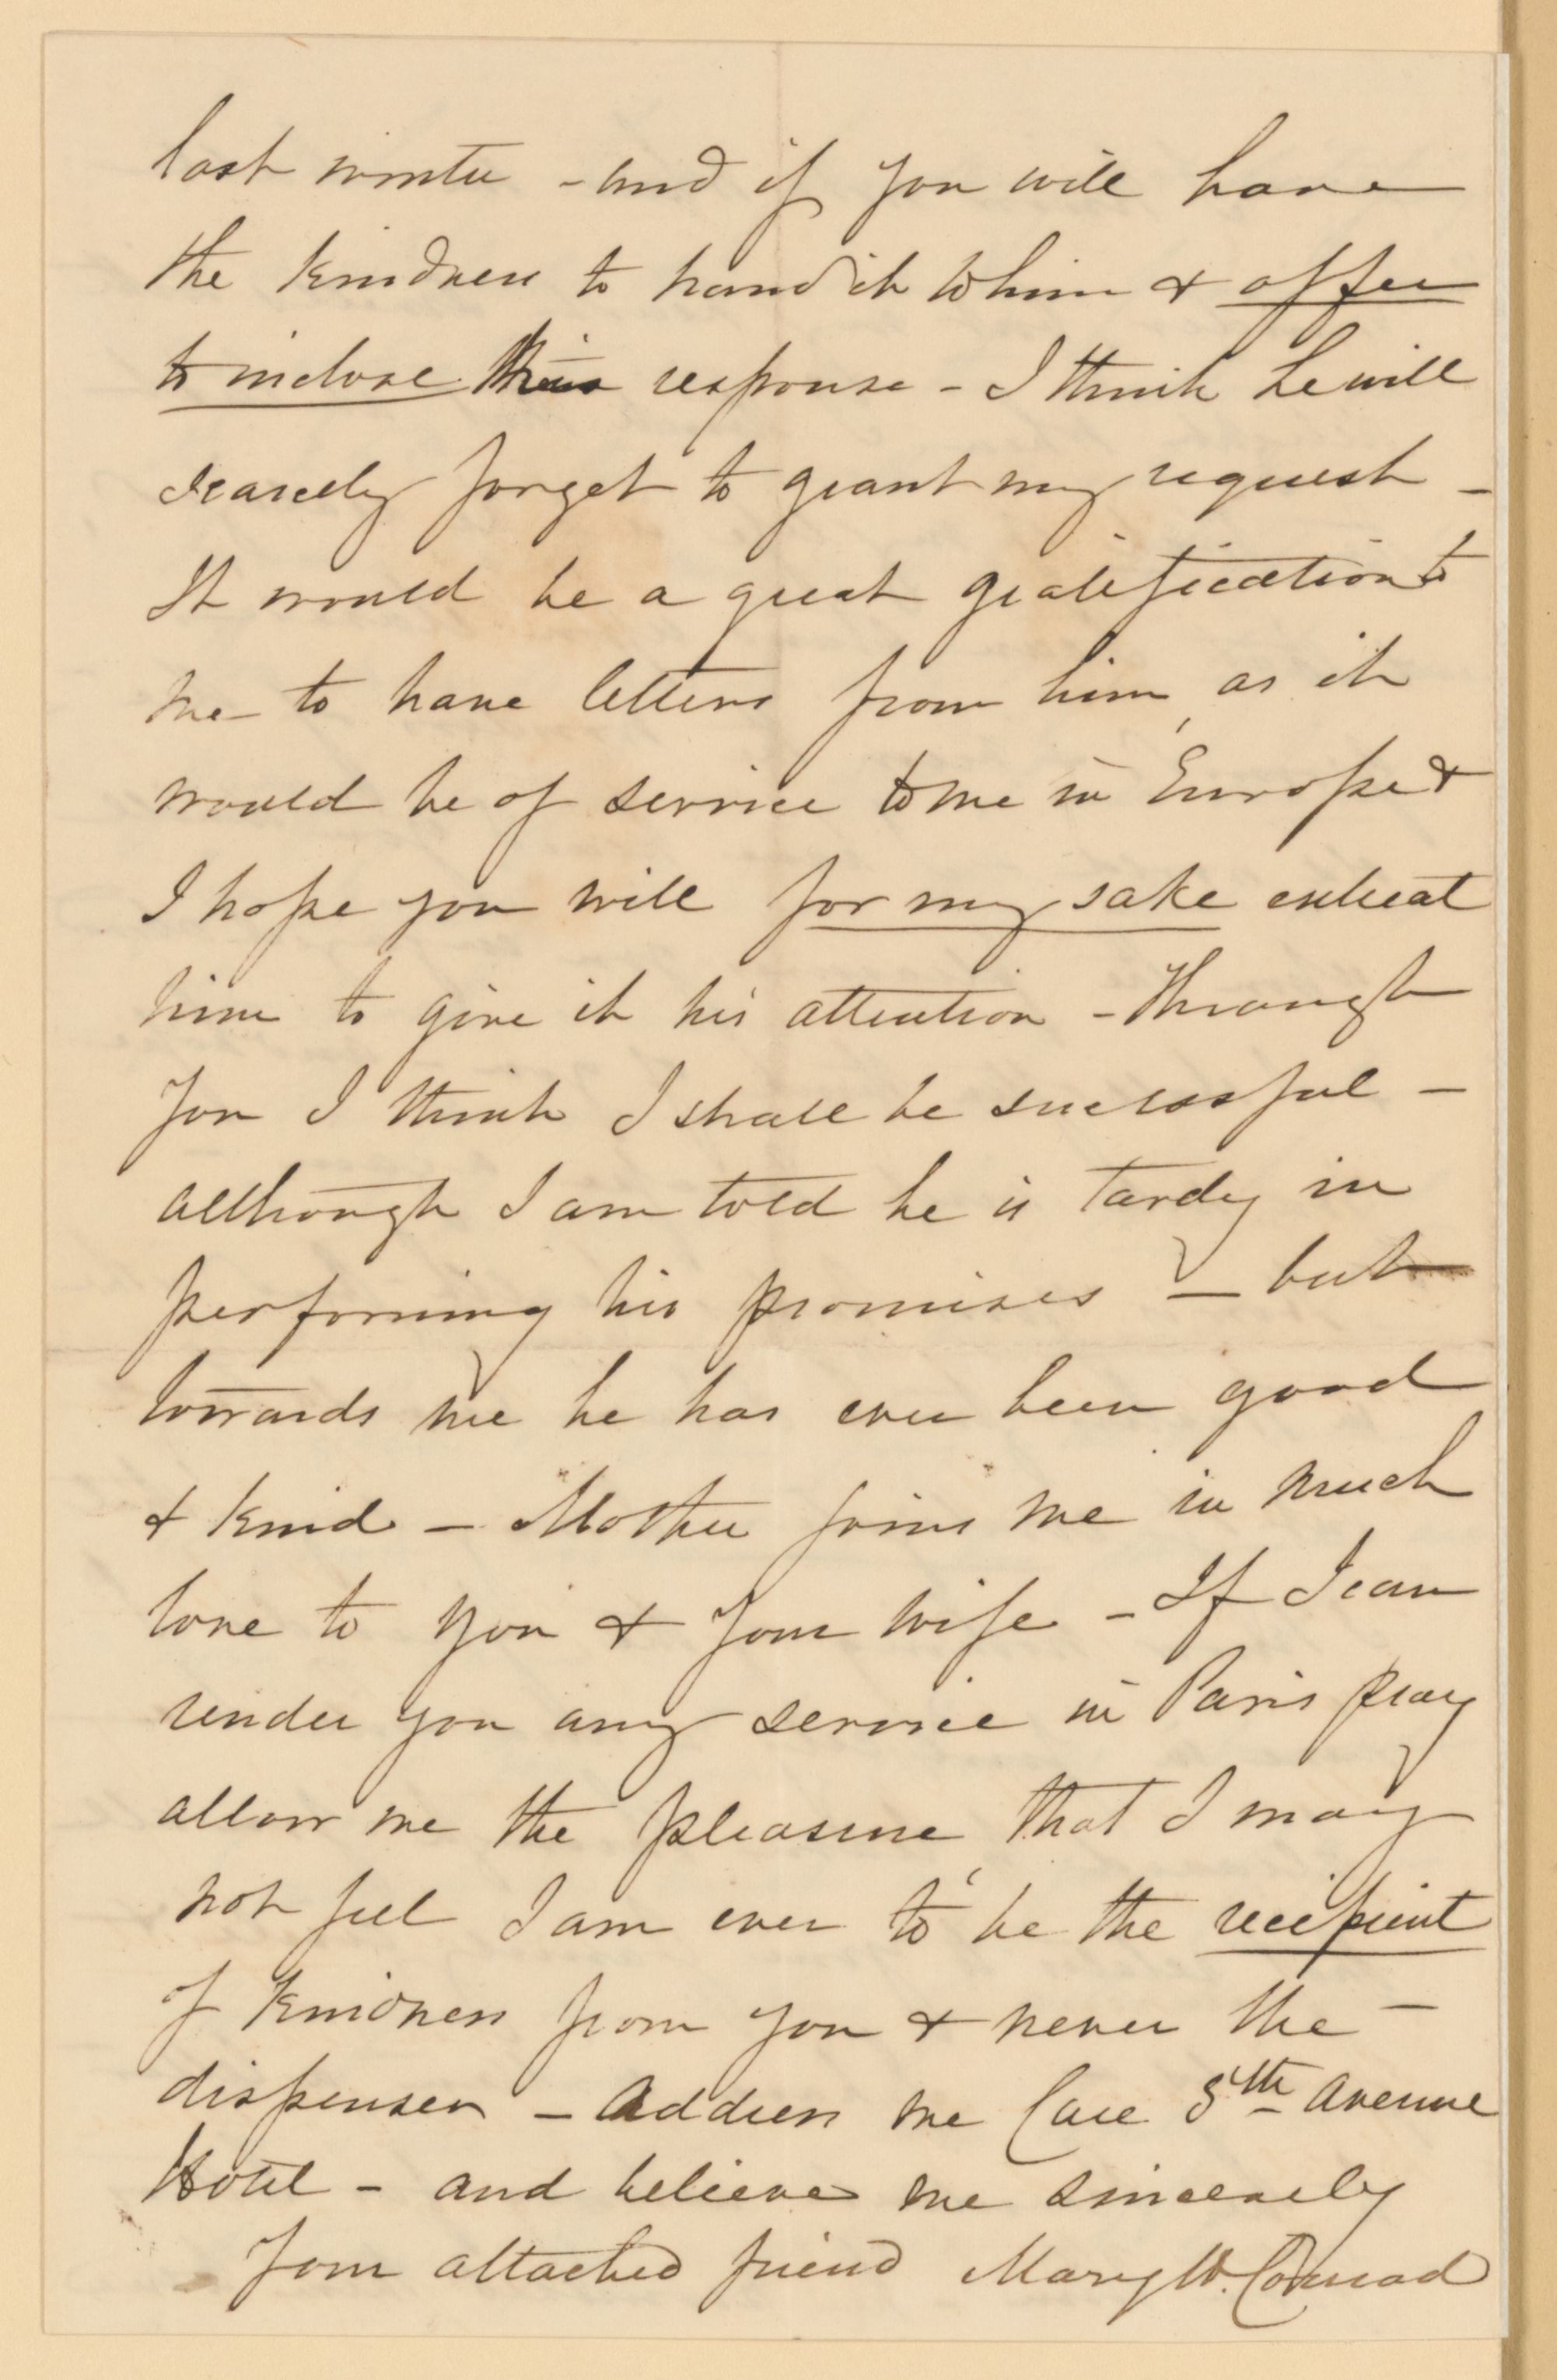 last winter - and if you will have
the kindness to hand it to him & offer
to inclose his response - I think he will
scarcely forget to grant my request -
It would be a great gratification to
me to have letters from him, as it
would be of service to me in Europe &
I hope you will for my sake entreat
him to give it his attention - Through
you I think I shall be successful -
although I am told he is tardy in
performing his promises - but
towards me he has ever been good
& kind - Mother joins me in much
love to you & your wife - If I can
render you any service in Paris pray
allow me the pleasure, that I may
not feel I am ever to be the recipient
of kindness from you & never the -
dispenser - Address me Care 5th Avenue
Hotel - and believe me sincerely
Your attached friend Mary W. Conrad